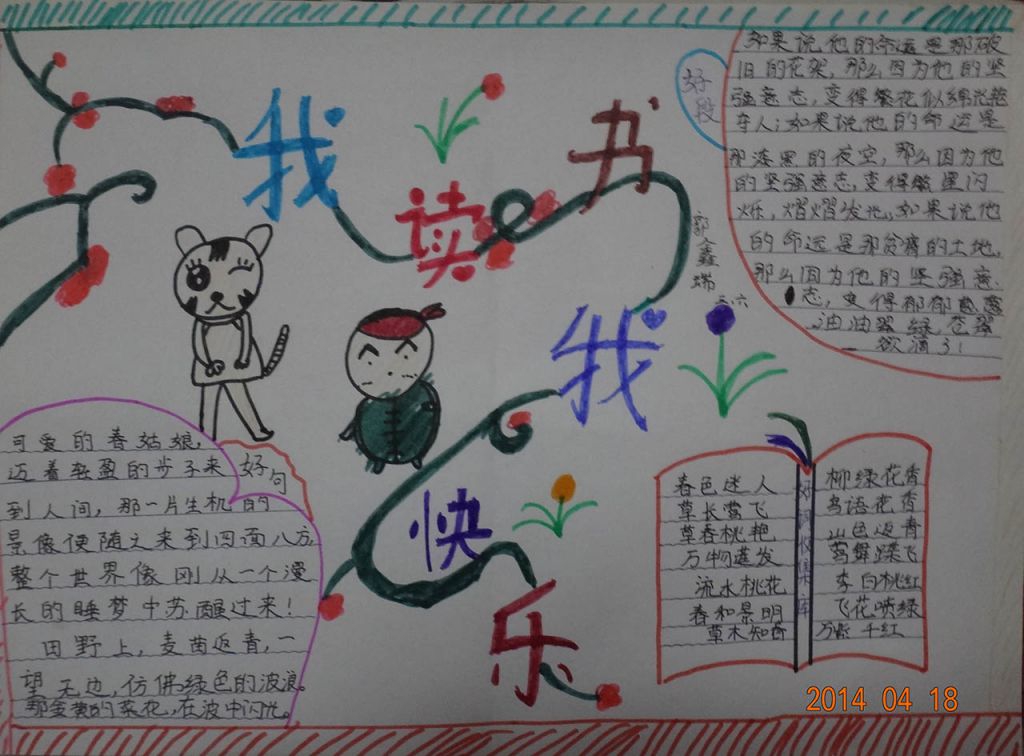 我读书
我快乐
郭鑫瑞
三.六
好段
如果说他的命运是那破
旧的花架,那么因为他的坚
强意志,变得繁花似绵光艳
夺人;如果说他的命运是
那漆黑的夜空,那么因为他
的坚强意志,变得繁星闪
烁,熠熠发光。如果说他
的命运是那贫瘠的土地,
那么因为他的坚强意
志,变得郁郁葱葱
油油翠绿,苍翠
欲滴了!
好句
可爱的春姑娘,
迈着轻盈的步子来
到人间,那一片生机的
景像便随之来到四面八方,
整个世界像刚从一个漫
长的睡梦中苏醒过来!
田野上,麦苗返青,一
望无边,仿佛绿色的波浪。
那金黄的菜花,在波中闪光。
好词收集库
春色迷人
草长莺飞
草春桃艳
万物蓬发
流水桃花
春和景明
草木知春
柳绿花香
鸟语花香
山色返青
莺舞蹀飞
李白桃红
飞花喷绿
万紫千红
2014 04 18